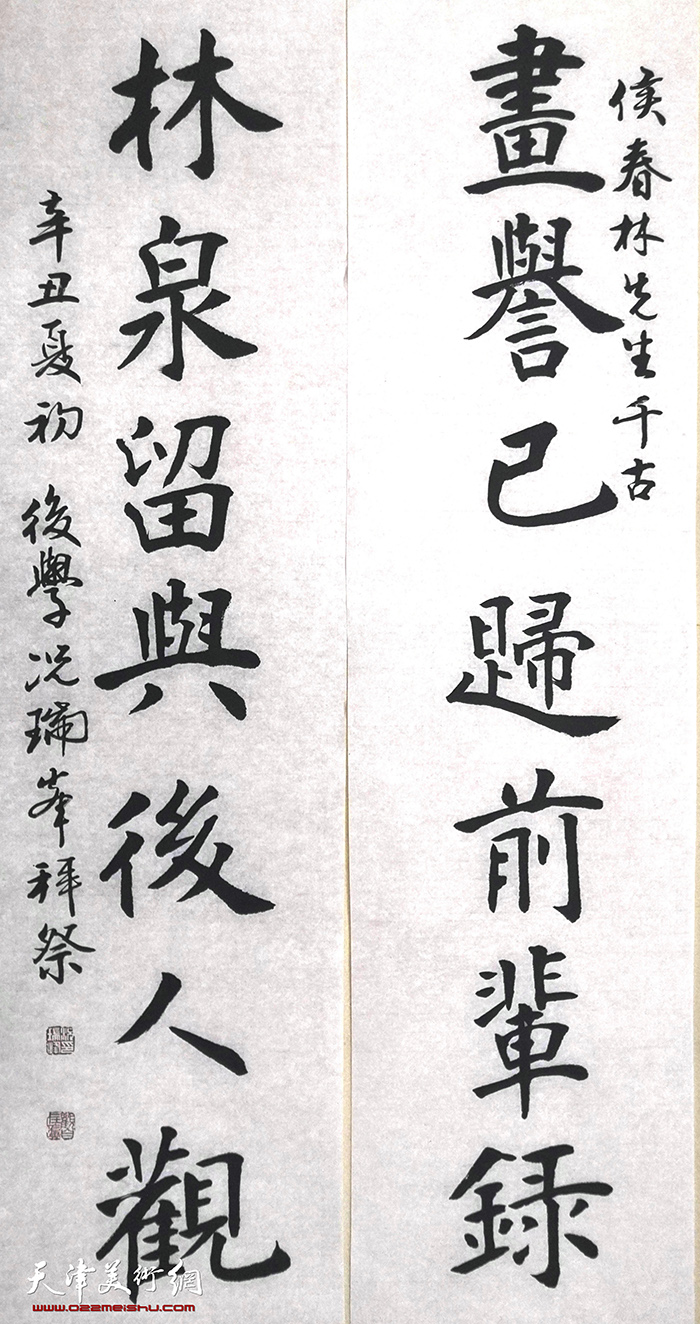 侯春林先生千古
畫譽已歸前輩録
林泉留與後人觀
辛丑夏初 後學況瑞峯拜祭
天津美術網
www.022meishu.com